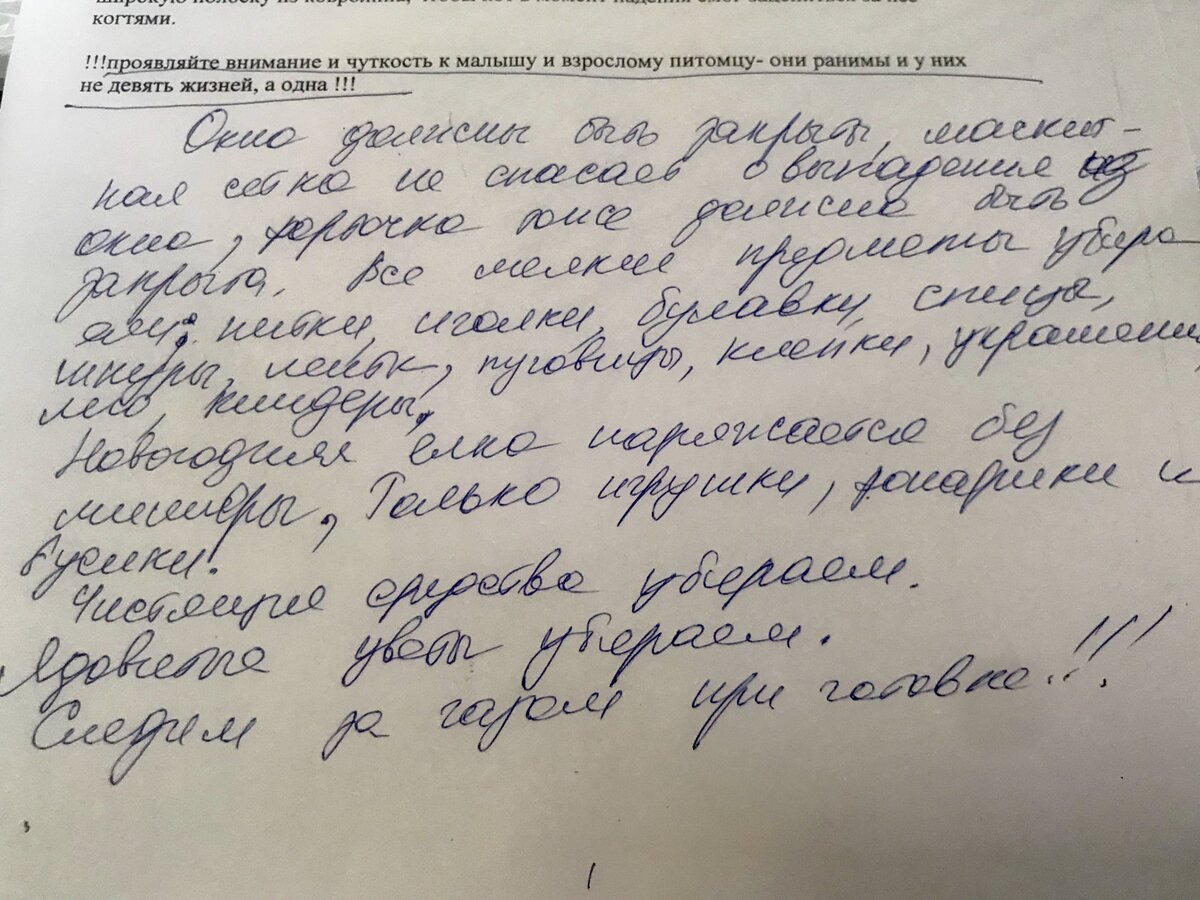 широкую полоску из ковролина, чтобы кот в момент падения смог зацепиться за нее
когтями.
!!!проявляйте внимание и чуткость к малышу и взрослому питомцу- они ранимы и у них
не девять жизней, а одна !!!
Окно должны быть закрыты, маскит-
ная сетка не спасает о выпадения из
окна, форточка тоже должна быть
закрыта. Все мелкие предметы убира
ем: нитки, иголки, булавки, спицы,
шнуры, пуговицы, клепки, украшени
лего, киндеры.
Новогодняя елка наряжается без
мишуры, Только игрушки, фонарики и
бусики.
Чистящие средства убираем.
Ядовитые цветы убираем.
Следим за газом при готовке!!!